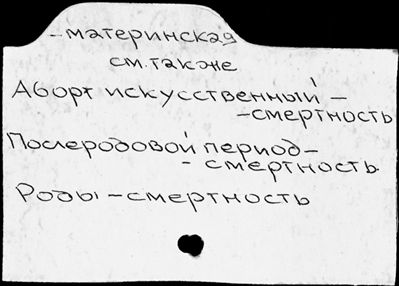 -материнская
см. также
Аборт искусственный -
-смертность
Послеродовой период-
- смертность
Роды - смертность